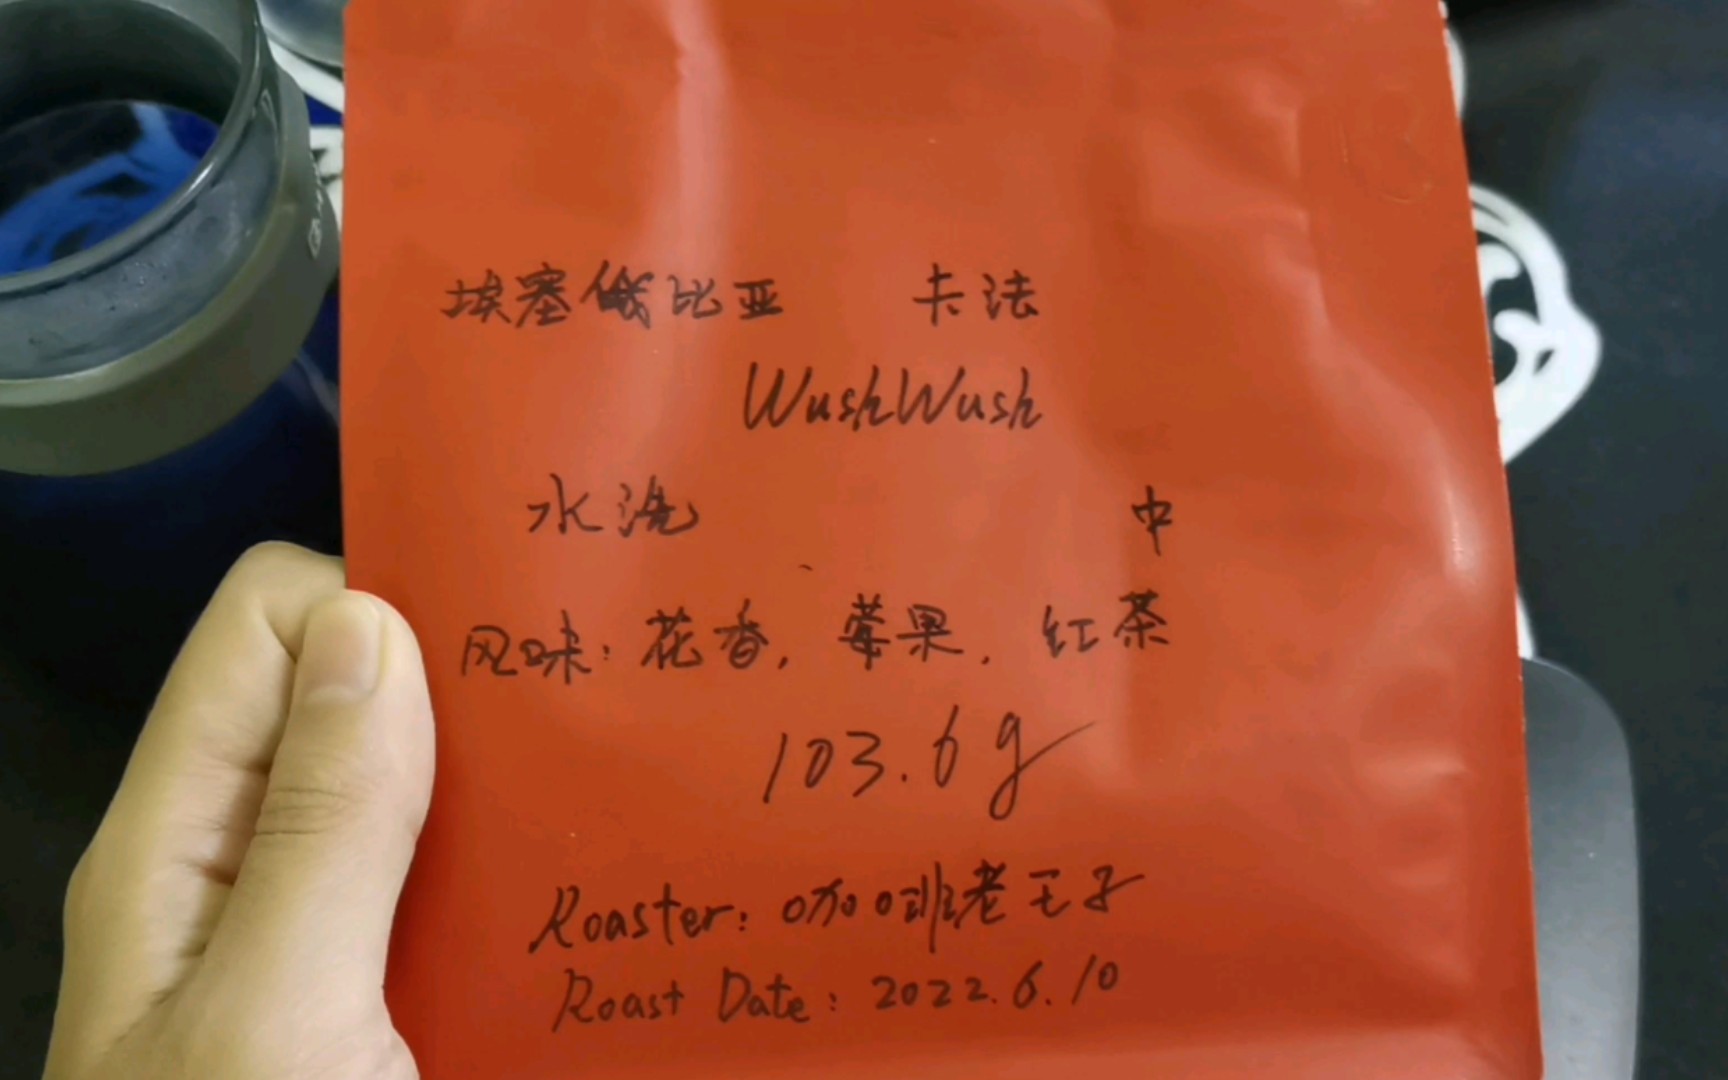 埃塞俄比亚 卡法
WushWush
水洗 中
风味：花香，莓果，红茶
103.6g
Roaster：咖啡老王子
Roast Date：2022.6.10